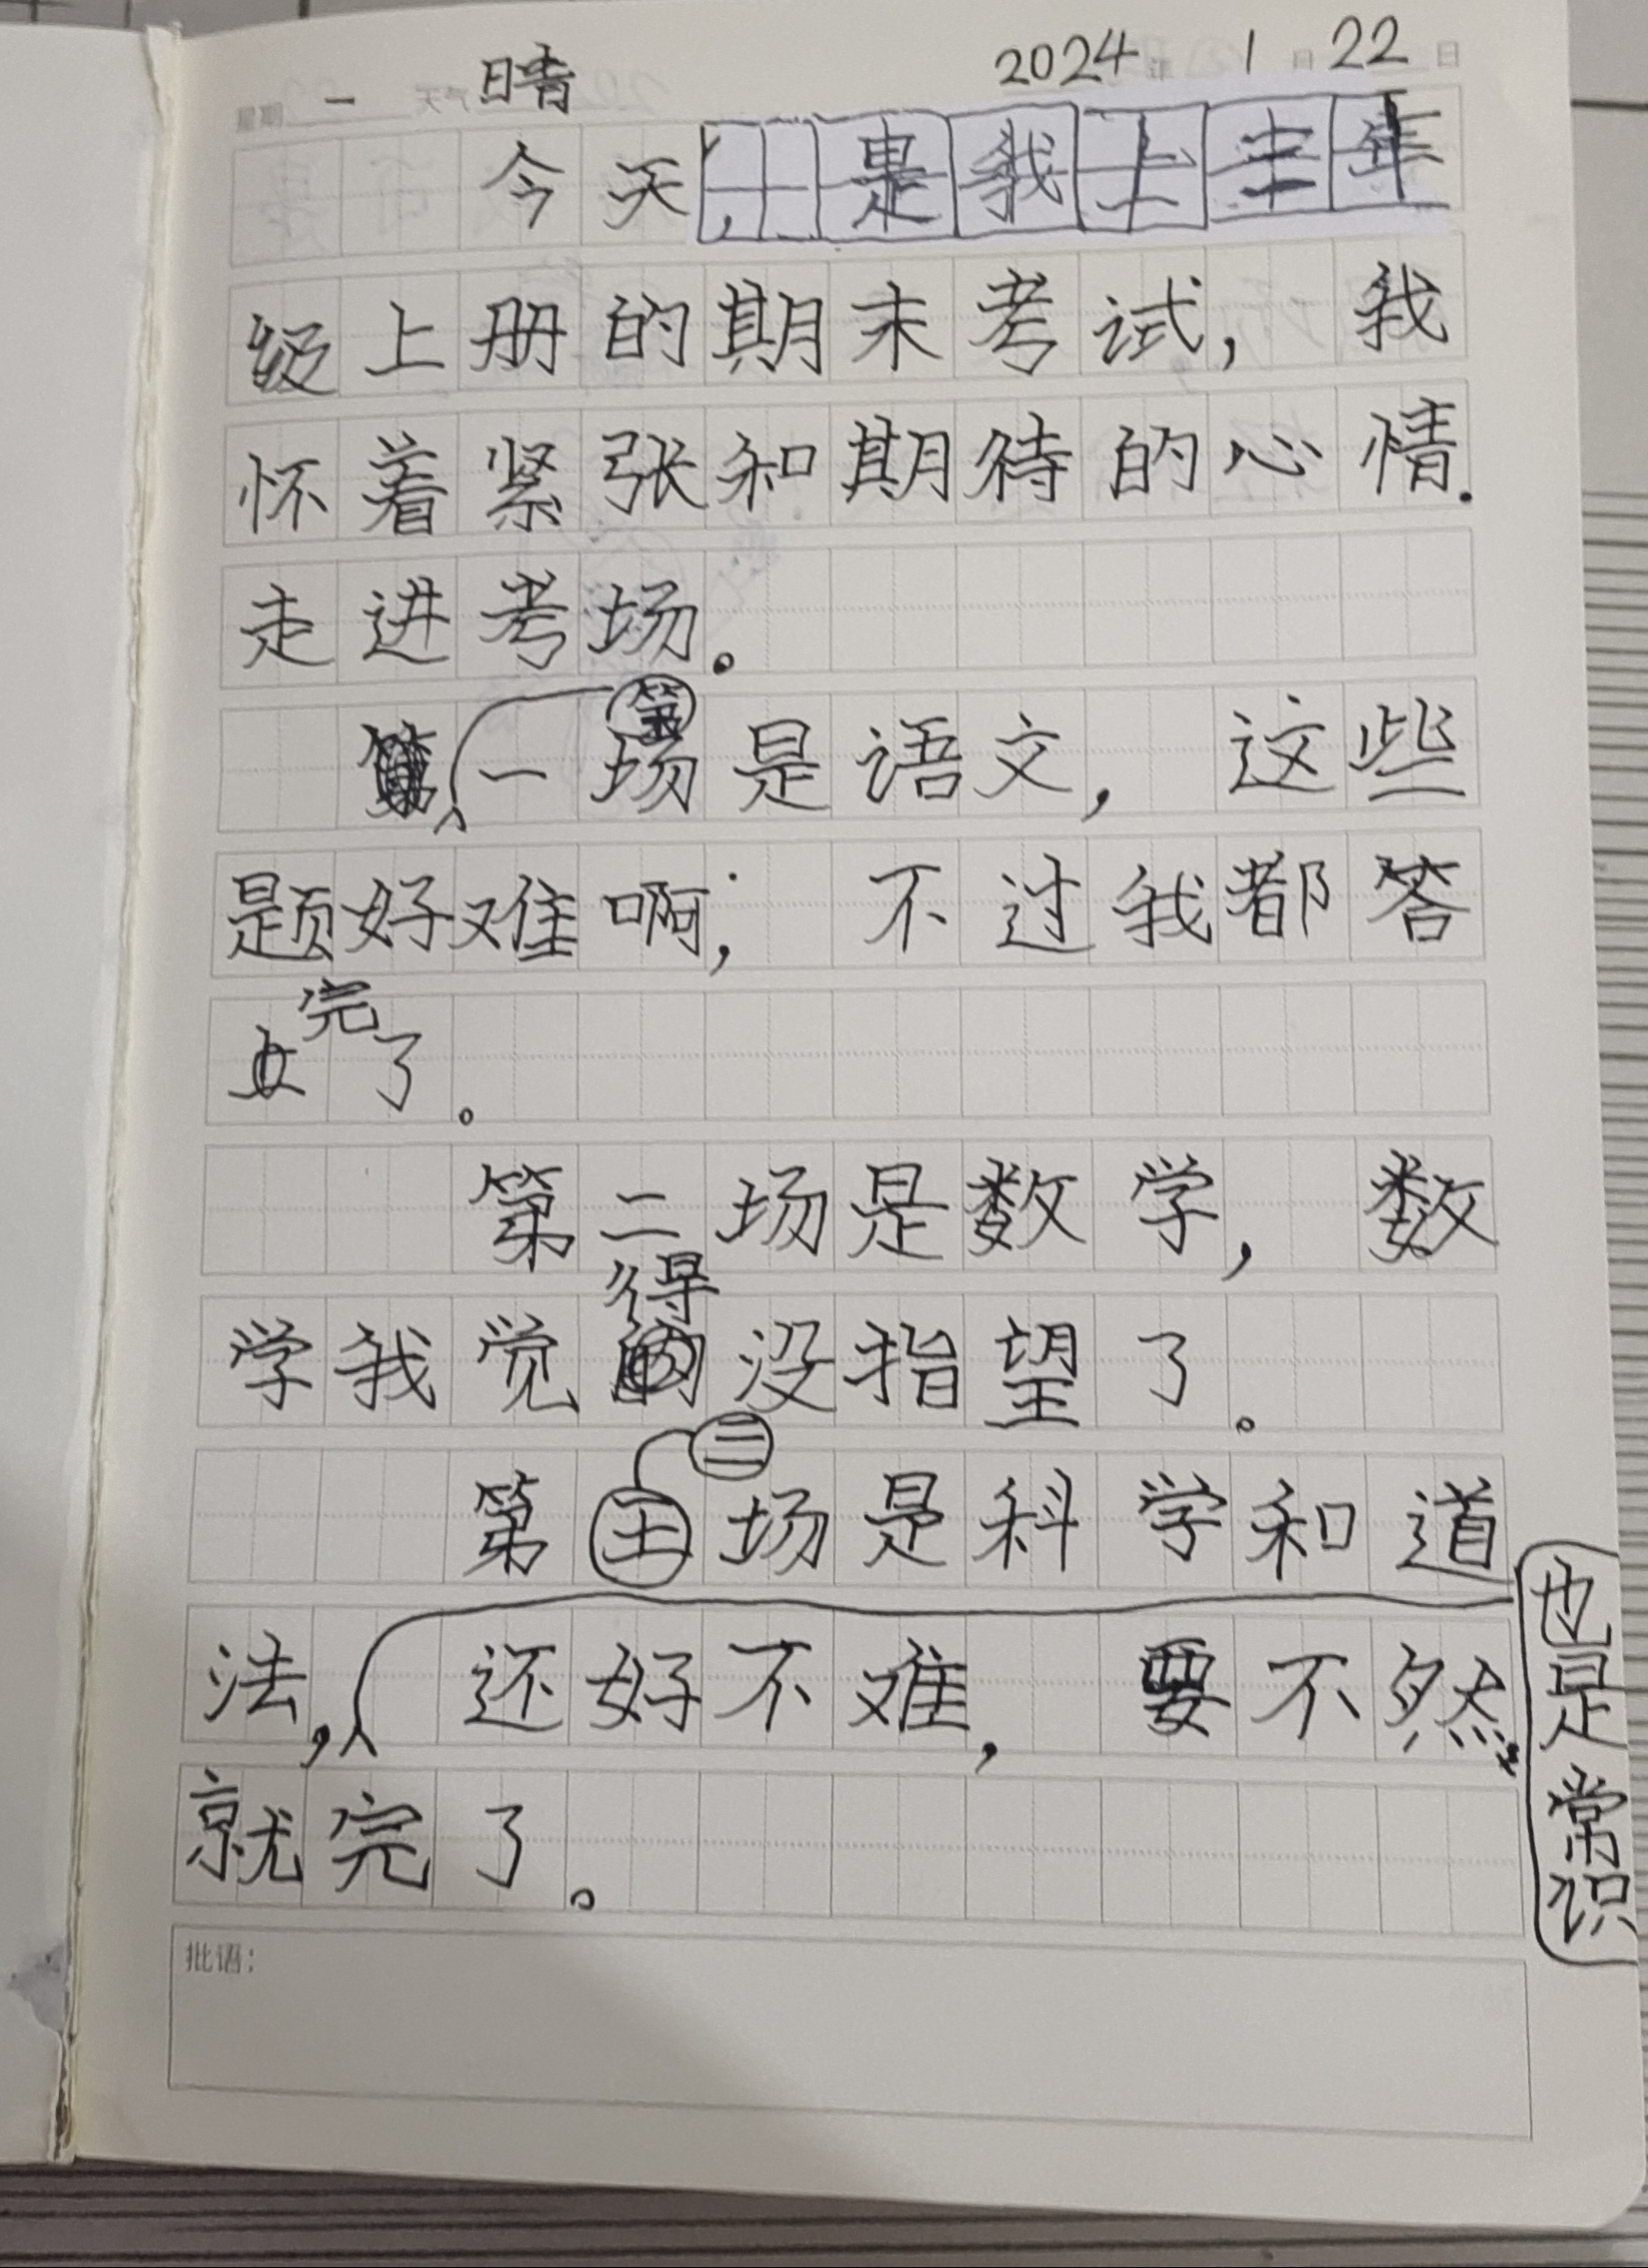 星期一 天气晴 2024年1月22日
今天,是我上三年
级上册的期末考试,我
怀着紧张和期待的心情.
走进考场。
第一场是语文,这些
题好难啊;不过我都答
完了。
第二场是数学,数
学我觉得没指望了。
第三场是科学和道
法,也是常识还好不难,要不然,
就完了。
批语: